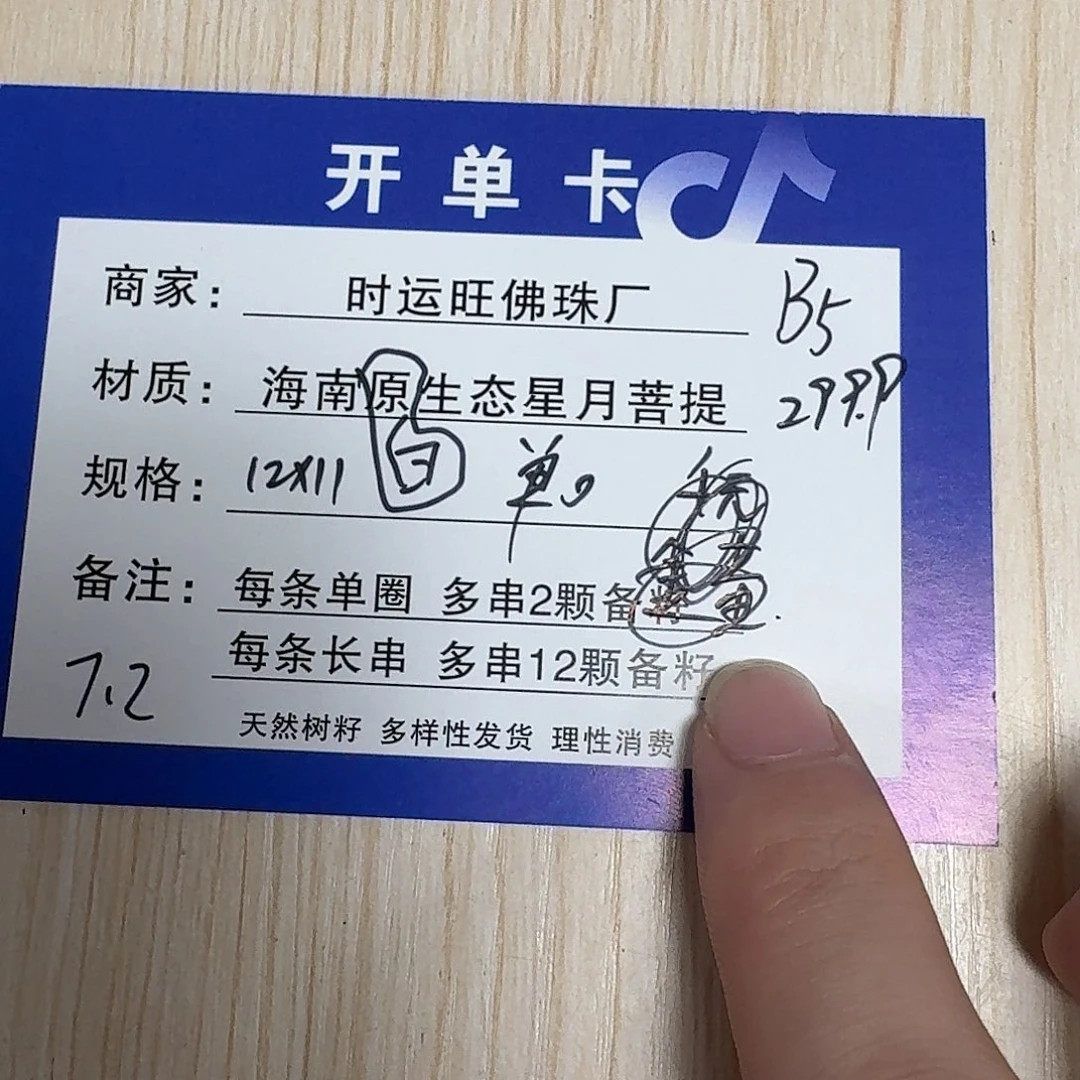 开单卡
商家： 时运旺佛珠厂 B5
材质： 海南原生态星月菩提 299.9
规格： 12X11 白 单
备注： 每条单圈 多串2颗备籽
每条长串 多串12颗备籽
7.2
天然树籽 多样性发货 理性消费